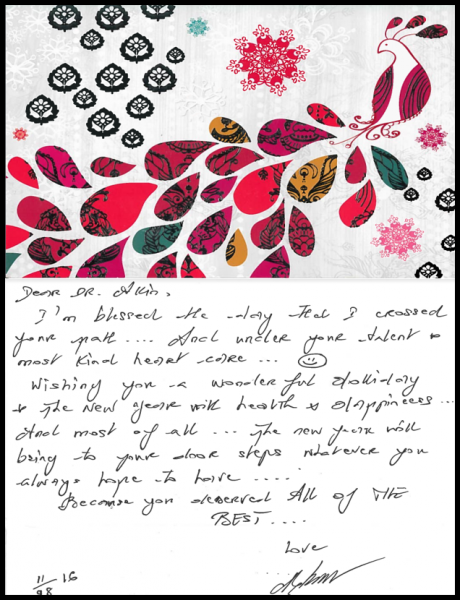 Dear DR. Alkin,
I'm blessed the day that I crossed
your path .... And under your talent &
most kind heart care ... 
Wishing you a wonderful Holliday
& The New year with health & Happiness ...
And most of all ... The new year will
bring to your door steps whatever you
always hope to have .....
Because you deserved All of THE
BEST ....
Love
11 16